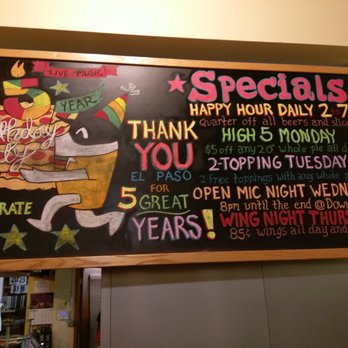 LIVE MUSIC
5
YEAR
THANK
YOU
EL PASO
FOR
5 GREAT
YEARS!
RATE
Specials
HAPPY HOUR DAILY 2-7
Quarter off all beers and slice
HIGH 5 MONDAY
$5 off any 20" whole pie all da
2-TOPPING TUESDAY
2 free toppings with any whole p
OPEN MIC NIGHT WEDN
8pm until the end @Dow
WING NIGHT THURS
85¢ wings all day and